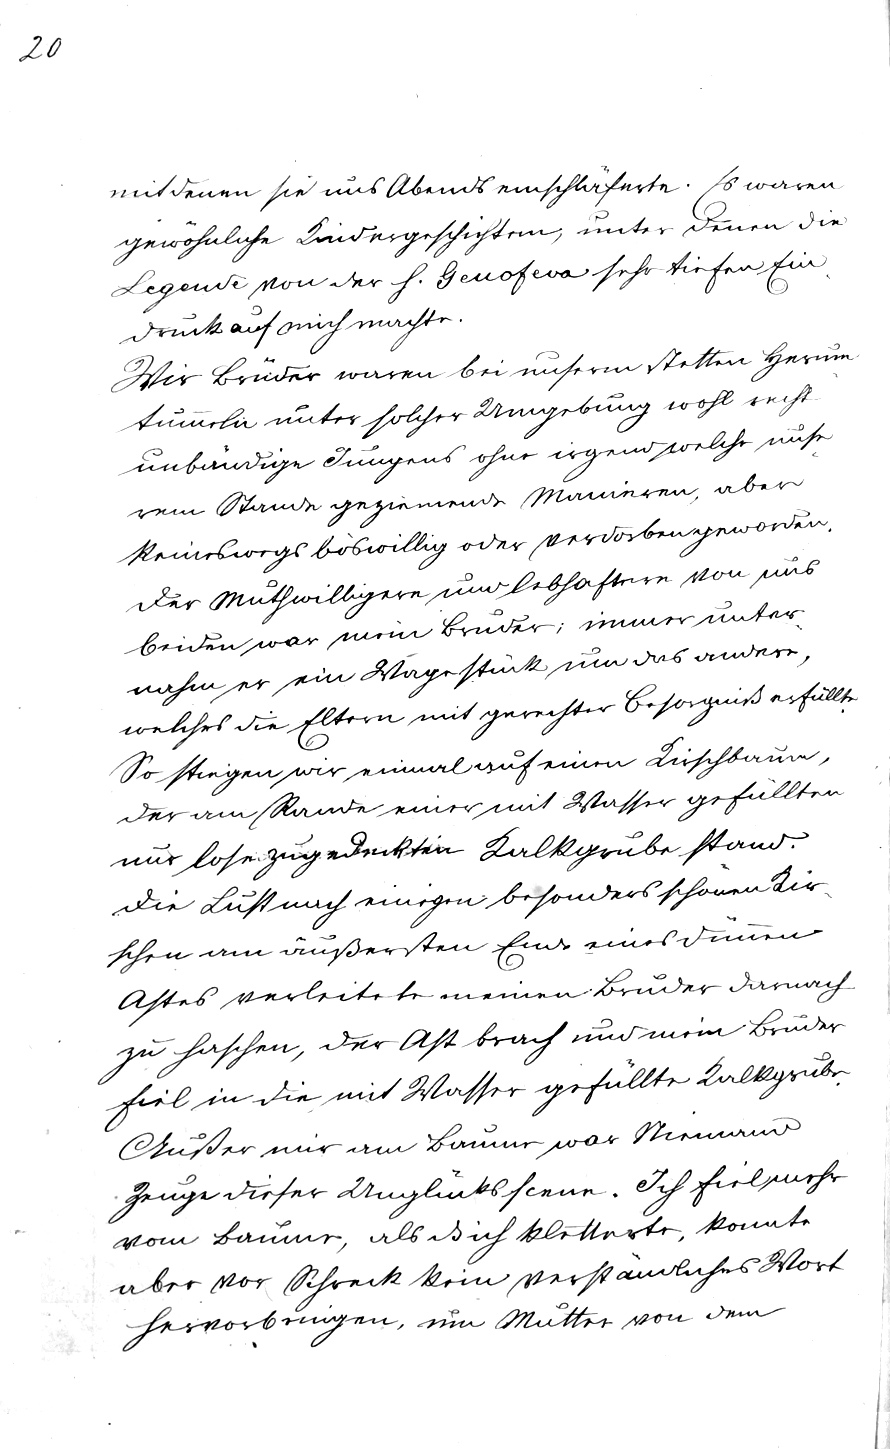 20
mit denen sie uns Abends einschläferte. Es waren
gewöhnliche Kindergeschichten, unter denen die
Legende von der h. Genofeva sehr tiefen Ein-
druck auf mich machte.
Wir Brüder waren bei unserm stetten Herum
tum̄eln unter solcher Umgebung wohl recht
unbändige Jungens ohne irgend welche unse-
rem Stande geziemende Manieren, aber
keineswegs böswillig oder verdorben geworden.
Der Muthwilligere und lebhaftere von uns
beiden war mein Bruder; immer unter-
nahm er ein Wagestück um das andere,
welches die Eltern mit gerechter Besorgniß erfüllte.
So stiegen wir einmal auf einen Kirschbaum,
der am Rande einer mit Wasser gefüllten
nur lose zugedeckten Kalkgrube stand.
Die Lust nach einigen besonders schönen Kir-
schen am äußersten Ende eines dün̄en
Astes verleitete meinen Bruder darnach
zu haschen, der Ast brach und mein Bruder
fiel in die mit Wasser gefüllte Kalkgrube.
Außer mir am Baume war Niemand
Zeuge dieser Unglücksscene. Ich fiel mehr
vom Baume, als daß ich kletterte, konnte
aber vor Schreck kein verständliches Wort
hervorbringen, um Mutter von dem